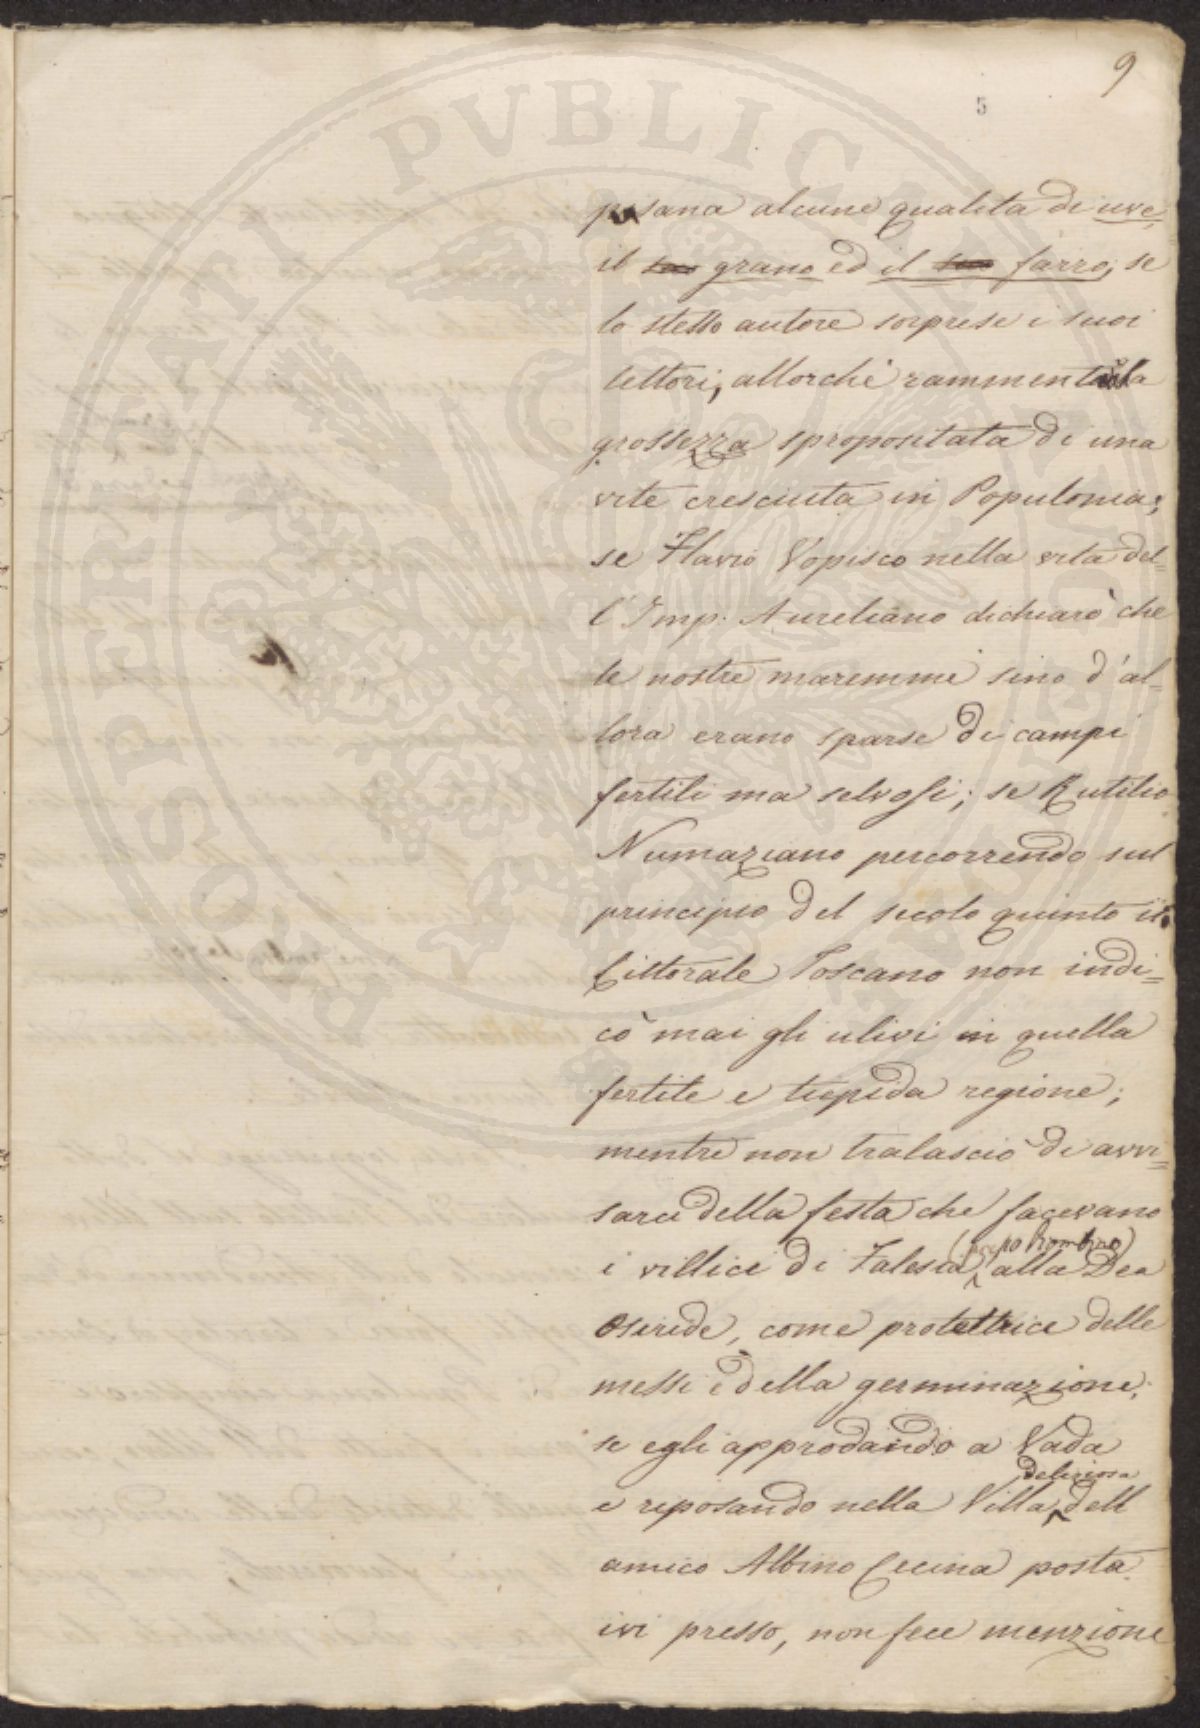 9
5
pisana alcune qualità di uve,
il suo grano ed il suo farro; se
lo stesso autore sorprese i suoi
lettori, allorchè rammentò la
grossezza spropositata di una
vite cresciuta in Populonia;
se Flavio Vopisco nella vita del=
l'Imp. Aureliano dichiarò che
le nostre maremme sino d'al=
lora erano sparse di campi
fertili ma selvosi; se Rutilio
Numaziano percorrendo sul
principio del secolo quinto il
Littorale Toscano non indi=
cò mai gli ulivi in quella
fertile e tiepida regione;
mentre non tralasciò di avvi=
sarci della festa che facevano
(Piombino)
i villici di Falesia alla Dea
Osiride, come protettrice delle
messi e della germinazione;
se egli approdando a Vada
deliziosa
e riposando nella Villa dell
amico Albino Cecina posta
ivi presso, non fece menzione
PROSPERITATI PVBLICAE